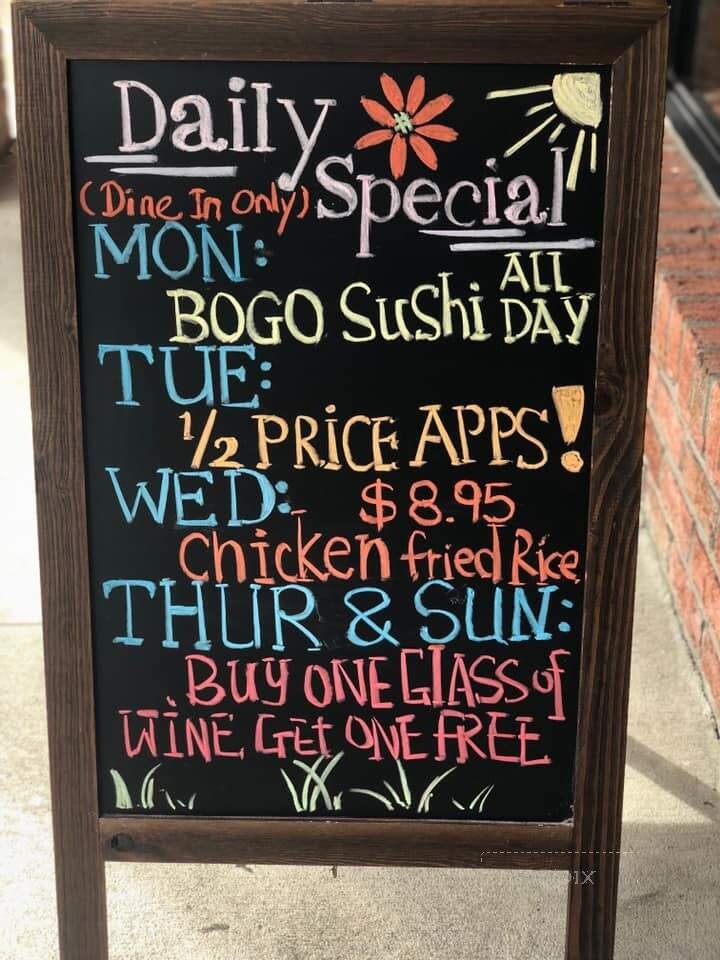 Daily
Special
(Dine In Only)
MON:
BOGO SuShi ALL DAY
TUE:
1/2 PRiCE APPS!
WED: $8.95
Chicken fried Rice
THUR & SUN:
BUY ONE GlASS of
WiNE GEt ONE FREE